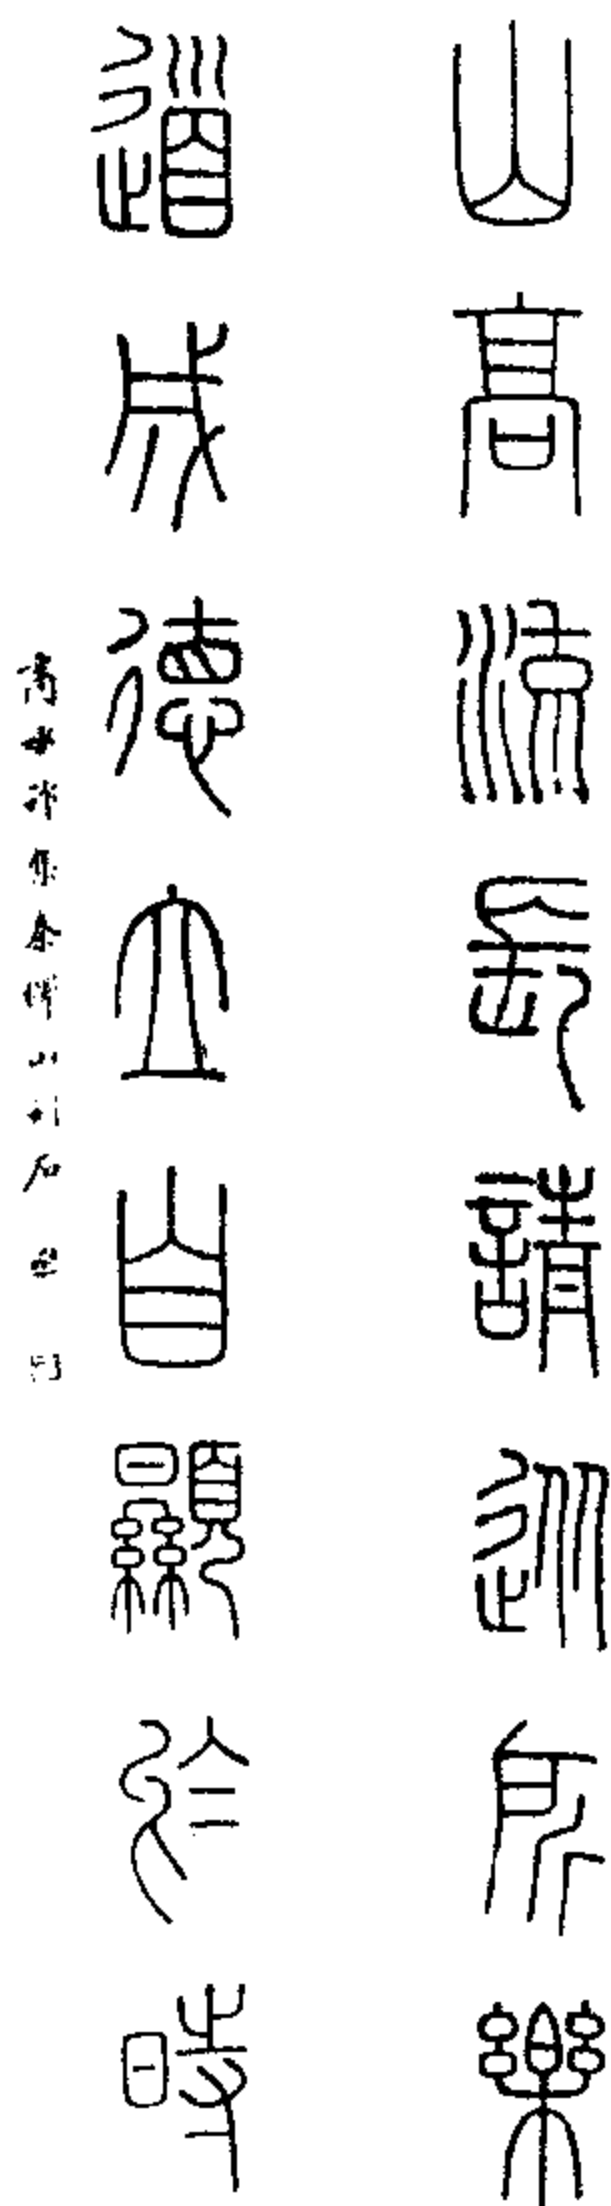 山高流長請從所樂
道成德立自顯於時
集秦嶧山刻石